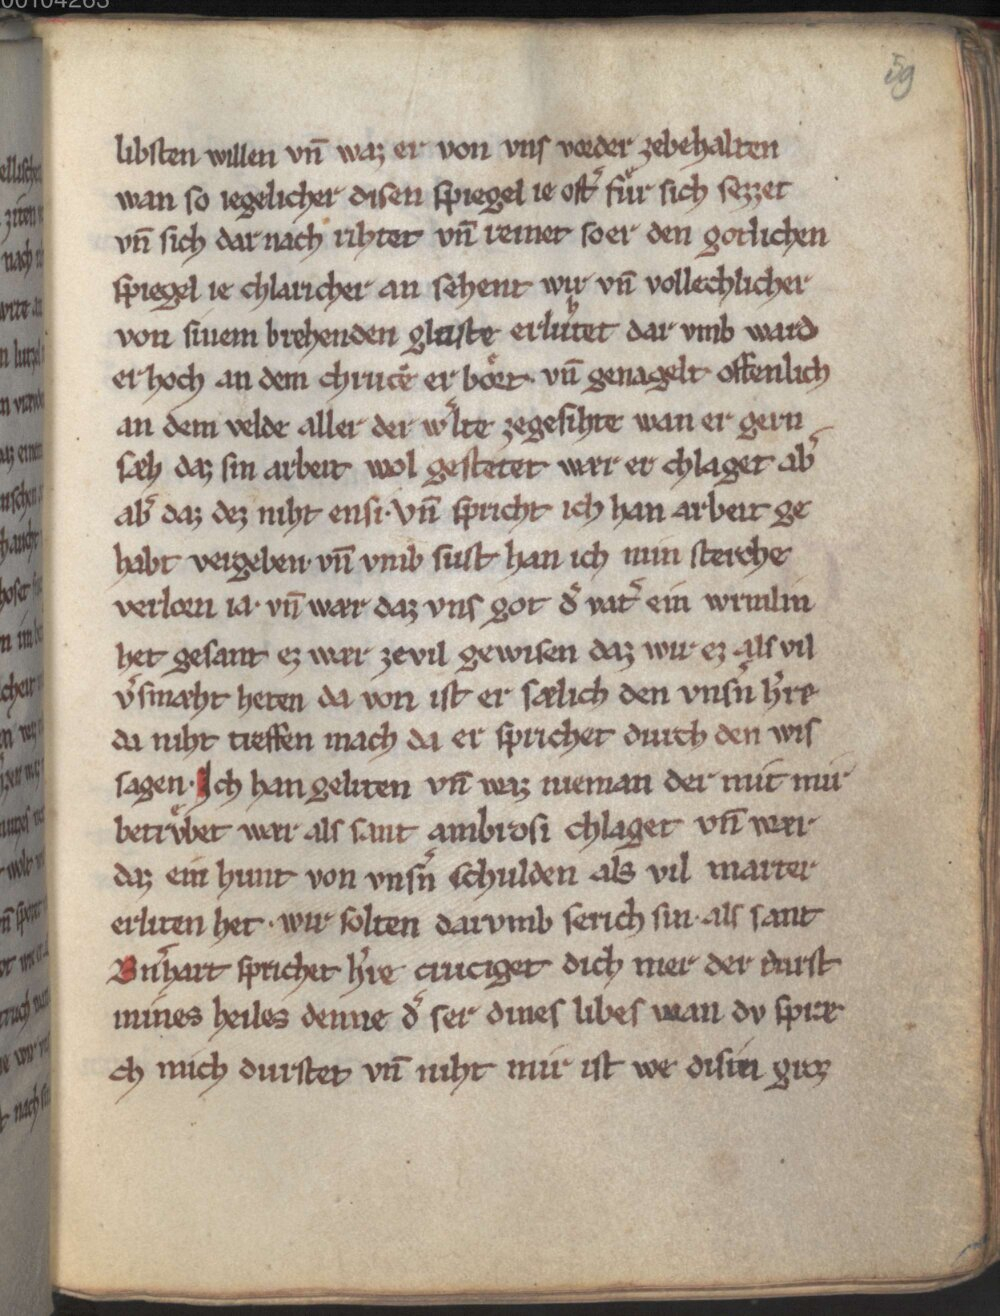 59
libsten willen vn̄ waz er von vns voeder zebehalten
wan so iegelicher disen spiegel ie oft̾ fuͤr sich sezzet
vn̄ sich dar nach rihtet vn̄ reinet so er den gotlichen
spiegel ie chlaricher an sehent wirt vn̄ vollechlicher
von sinem brehenden glaste erluhtet dar vmb ward
er hoch an dem chruce er boͤrt · vn̄ genagelt offenlich
an dem velde aller der wͤlte zegesihte wan er gern
sæh daz sin arbeit wol gestetet wær er chlaget ab̾
ab̾ daz dez niht ensi · Vn̄ spricht ich han arbeit ge
habt vergeben · vn̄ vmb sust han ich min sterche
verlorn ia · vn̄ wær daz vns got d̾ vat̾ ein wrmlin
het gesant ez wær zevil gewisen daz wir ez als vil
v̾smæht heten da von ist er sælich den vnsn̾ h̾re
da niht treffen mach da er sprichet durch den wis
sagen · Ich han geliten vn̄ waz nieman der mit mir
betrvͤbet wær als sant ambrosi chlaget vn̄ wær
daz ein hunt von vnsn̾ schulden als vil marter
erliten het · wir solten darvmb serich sin · als sant
Bn̾hart sprichet h̾re cruciget dich mer der durst
mines heiles denne d̾ ser dines libes wan dv spræ
ch mich durstet vn̄ niht mir ist we disiu groz